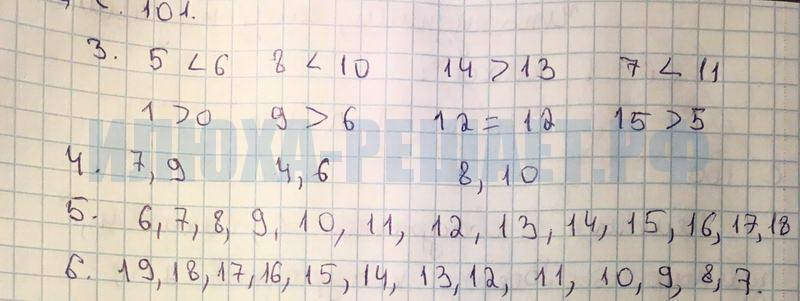 с. 101.
3. 5 < 6 8 < 10 14 > 13 7 < 11
1 > 0 9 > 6 12 = 12 15 > 5
ИЛЮХА-РЕШАЕТ.РФ
4. 7, 9 4, 6 8, 10
5. 6, 7, 8, 9, 10, 11, 12, 13, 14, 15, 16, 17, 18
6. 19, 18, 17, 16, 15, 14, 13, 12, 11, 10, 9, 8, 7.